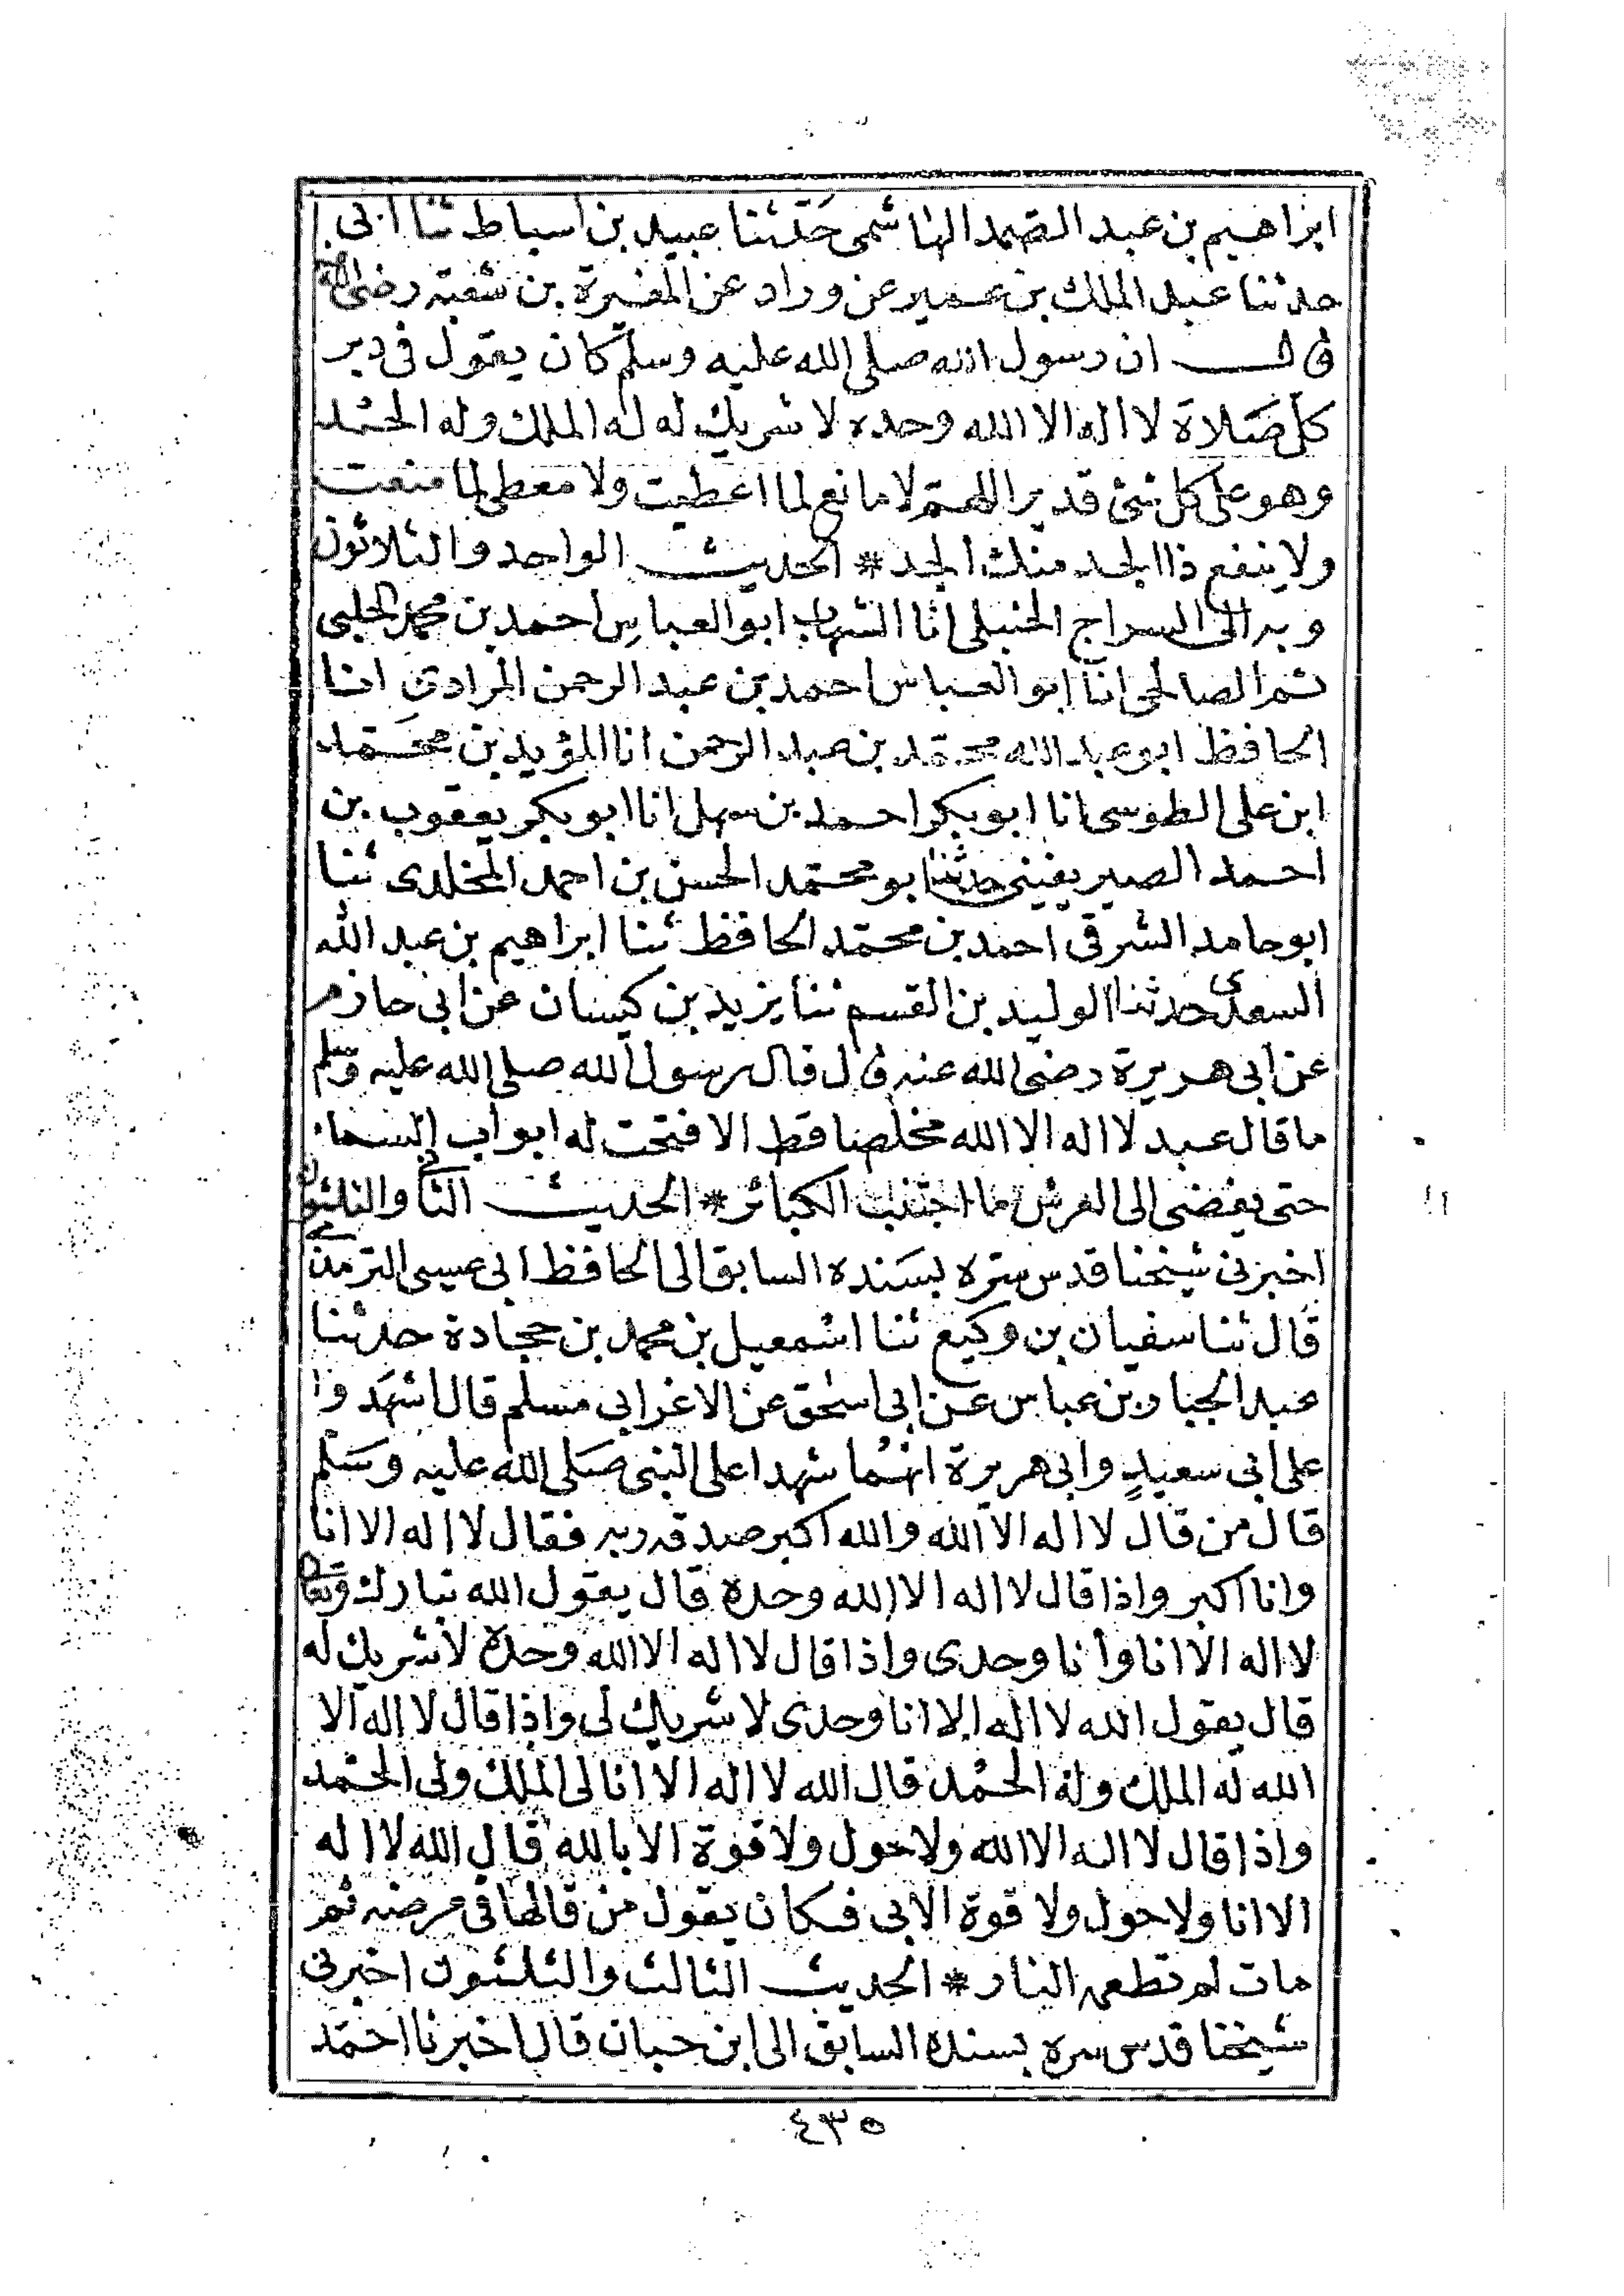 ابراهيم بن عبد الصمد الهاشمي حَدّثنا عبيد بن اسباط ثنا ابى
حدثنا عبد الملك بن عمير عن وراد عن المغيرة بن شعبة رضى الله
قال ان رسول الله صلى الله عليه وسلم كان يقول فى دبر
كل صَلاة لا اله الا الله وحده لا شريك له له الملك وله الحمد
وهو على كل شئ قدير اللهم لا مانع لما اعطيت ولا معطى لما منعت
ولا ينفع ذا الجد منك الجد * الحديث الواحد والثلاثون
وبه الى السراج الحنبلى انا الشهاب ابو العباس احمد بن محمد الحلبى
ثم الصالحى انا ابو العباس احمد بن عبد الرحمن المرادى انا
الحافظ ابو عبد الله محمد بن عبد الرحمن انا المؤيد بن محمد
ابن على الطوسى انا ابو بكر احمد بن سهل انا ابو بكر يعقوب بن
احمد الصيريفينى حدثنا ابو محمد الحسن بن احمد المخلدى ثنا
ابو حامد الشرقى احمد بن محمد الحافظ ثنا ابراهيم بن عبد الله
السعدى حدثنا الوليد بن القسم ثنا يزيد بن كيسان عن ابى حازم
عن ابى هريرة رضى الله عنه قال قال رسول الله صلى الله عليه وسلم
ما قال عبد لا اله الا الله مخلصا قط الا فتحت له ابواب السماء
حتى يفضى الى العرش ما اجتنب الكبائر * الحديث الثانى والثلثون
اخبرنى شيخنا قدس سره بسَنده السابق الى الحافظ ابى عيسى الترمذى
قال ثنا سفيان بن وكيع ثنا اسمعيل بن محمد بن حجادة حدثنا
عبد الجبار بن عباس عن ابى اسحق عن الاغر ابى مسلم قال اشهَد وا
على ابى سعيدٍ وابى هريرة انهُما شهدا على النبى صَلى الله عليه وسَلم
قال من قال لا اله الا الله والله اكبر صدقه ربه فقال لا اله الا انا
وانا اكبر واذا قال لا اله الا الله وحده قال يقول الله تبارك وتعالى
لا اله الا انا وأنا وحدى واذا قال لا اله الا الله وحده لا شريك له
قال يقول الله لا اله الا انا وحدى لا شريك لى واذا قال لا اله الا
الله له الملك وله الحمد قال الله لا اله الا انا لى الملك ولى الحمد
واذا قال لا اله الا الله ولا حول ولا قوة الا بالله قال الله لا اله
الا انا ولا حول ولا قوة الا بى فكان يقول من قالها فى مرضه ثم
مات لم تطعمه النار * الحديث الثالث والثلثون اخبرنى
شيخنا قدس سره بسنده السابق الى ابن حبان قال اخبرنا احمد
٤٣٥